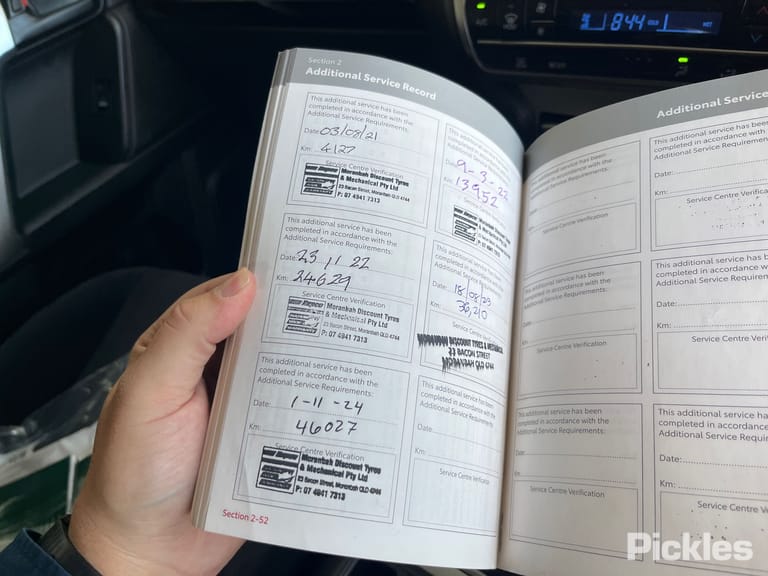 844
Section 2
Additional Service Record
This additional service has been
completed in accordance with the
Additional Service Requirements:
Date: 03/08/21
Km: 4127
Service Centre Verification
Moranbah Discount Tyres
& Mechanical Pty Ltd
23 Bacon Street, Moranbah QLD 4744
P: 07 4941 7313
This additional service has been
completed in accordance with the
Additional Service Requirements:
Date: 9-3-22
Km: 13952
Service Centre
Moranbah Discount Tyres
& Mechanical Pty Ltd
P: 07 4941 7313
This additional service has been
completed in accordance with the
Additional Service Requirements:
Date: 23 11 22
Km: 24629
Service Centre Verification
Moranbah Discount Tyres
& Mechanical Pty Ltd
23 Bacon Street, Moranbah QLD 4744
P: 07 4941 7313
This additional service has been
completed in accordance with the
Additional Service Requirements:
Date: 18/08/23
Km: 36,210
Service Centre
MORANBAH DISCOUNT TYRES & MECHANICAL
23 BACON STREET
MORANBAH QLD 4744
This additional service has been
completed in accordance with the
Additional Service Requirements:
Date: 1-11-24
Km: 46027
Service Centre Verification
Moranbah Discount Tyres
& Mechanical Pty Ltd
23 Bacon Street, Moranbah QLD 4744
P: 07 4941 7313
This additional service has been
completed in accordance with the
Additional Service Requirements:
Date:
Km:
Service Centre Verification
Section 2-52
Additional Service
This additional service has been
completed in accordance with the
Additional Service Requirements:
Date:
Km:
Service Centre Verification
This additional service has
completed in accordance
Additional Service Requirem
Date:
Km:
Service Centre Verifi
This additional service has been
completed in accordance with the
Additional Service Requirements:
Date:
Km:
Service Centre Verification
This additional service has b
completed in accordance
Additional Service Requirem
Date:
Km:
Service Centre Verifi
This additional service has been
completed in accordance with the
Additional Service Requirements:
Date:
Km:
Service Centre Verification
This additional service ha
completed in accordance
Additional Service Require
Date:
Km:
Service Centre Veri
Pickles